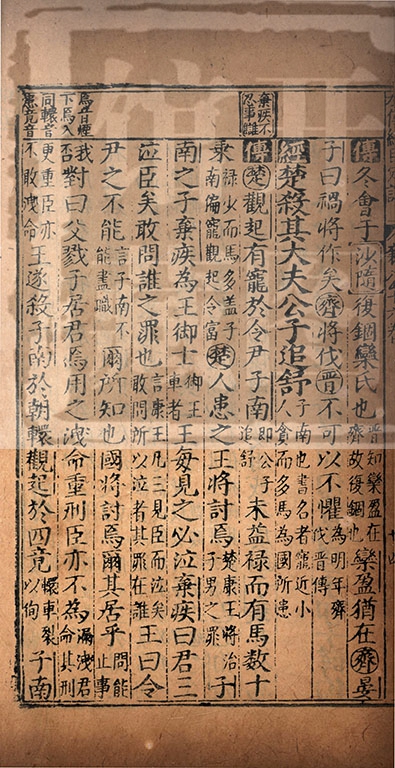 傳冬會于沙隨復錮欒氏也晉知欒盈在齊故復錮也欒盈猶在齊晏
子曰禍將作矣齊將伐晉不可以不懼為明年齊伐晉傳
經楚殺其大夫公子追舒子南也書名者寵近小人貪而多馬為國所患
棄疾不忍事讎
傳楚觀起有寵於令尹子南即公子追舒未益祿而有馬數十
乘祿少而馬多蓋子南偏寵觀起令富楚人患之王將討焉楚康王將治子男之罪子
南之子棄疾為王御士御王車者王每見之必泣棄疾曰君三
泣臣矣敢問誰之罪也言康王凡三見臣而泣矣敢問所以泣者其罪在誰王曰令
尹之不能言子南不能盡職爾所知也國將討焉爾其居乎問能止事
焉音煙下焉入同轘音患竟音
我否對曰父戮子居君焉用之洩命重刑臣亦不為漏洩君命其刑
更重臣亦不敢洩命王遂殺子南於朝轘觀起於四竟轘車裂以徇子南